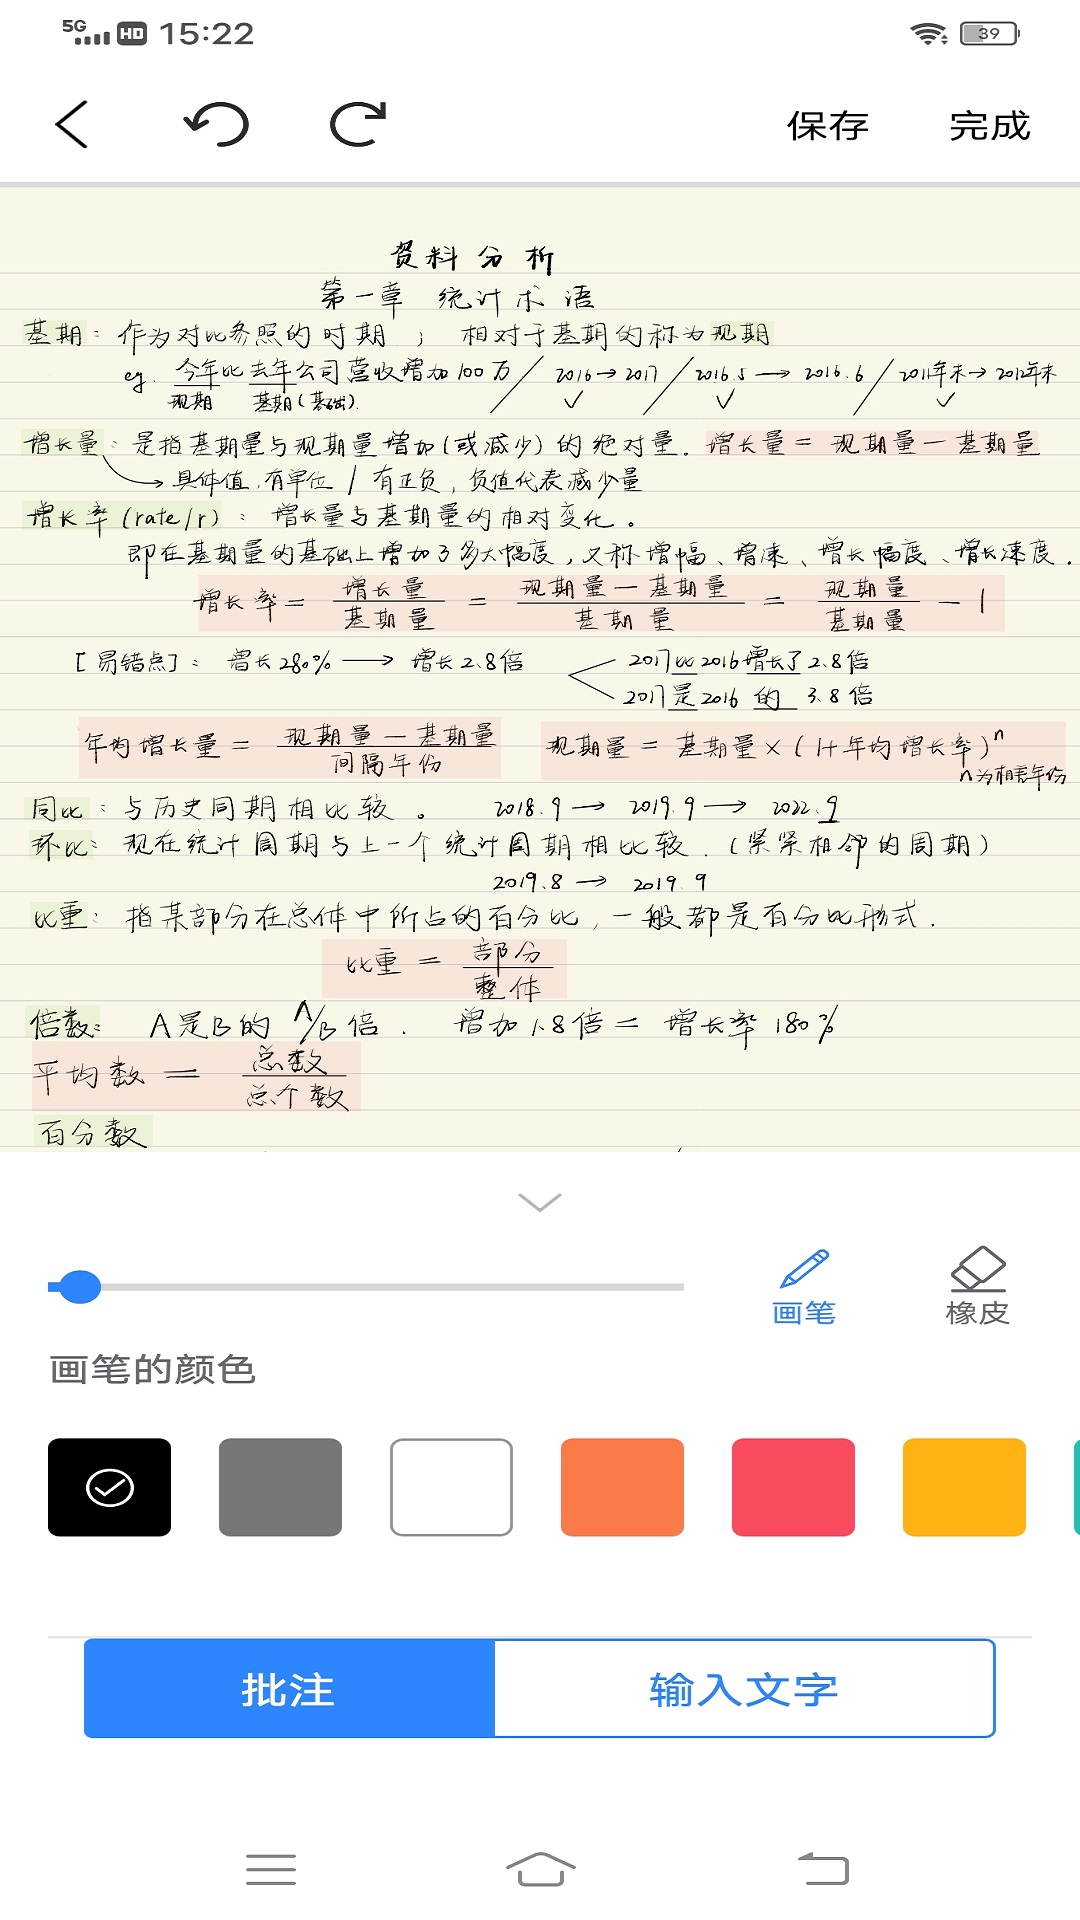 5G HD 15:22 39
保存 完成
资料分析
第一章 统计术语
基期：作为对比参照的时期； 相对于基期的称为现期
eg. 今年比去年公司营收增加100万 / 2016→2017 / 2016.5→2016.6 / 2011年末→2012年末
现期 基期(基础).
增长量：是指基期量与现期量增加(或减少)的绝对量. 增长量=现期量-基期量
→具体值,有单位 / 有正负, 负值代表减少量
增长率(rate/r)：增长量与基期量的相对变化。
即在基期量的基础上增加了多大幅度,又称增幅、增速、增长幅度、增长速度.
增长率= 增长量/基期量 = 现期量-基期量/基期量 = 现期量/基期量 -1
[易错点]：增长280%→增长2.8倍 2017比2016增长了2.8倍
2017是2016的 3.8倍
年均增长量= 现期量-基期量/间隔年份 现期量=基期量×(1+年均增长率)ⁿ
n为相差年份
同比：与历史同期相比较。 2018.9→2019.9→2022.9
环比：现在统计周期与上一个统计周期相比较.(紧紧相邻的周期)
2019.8→2019.9
比重：指某部分在总体中所占的百分比,一般都是百分比形式.
比重= 部分/整体
倍数：A是B的A/B倍. 增加1.8倍=增长率180%
平均数= 总数/总个数
百分数
画笔 橡皮
画笔的颜色
批注 输入文字